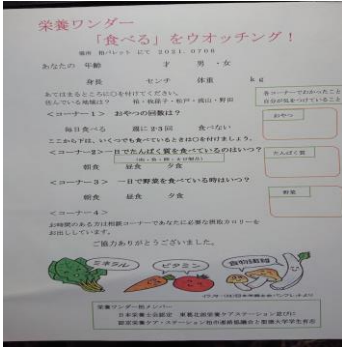 栄養ワンダー
「食べる」をウオッチング！
場所 柏パレット にて 2021.0709
あなたの 年齢 才 男 ・女
身長 センチ 体重 kg
あてはまるところに○を付けてください。
住んでいる地域は？ 柏・我孫子・松戸・流山・野田
＜コーナー1＞ おやつの回数は？
毎日食べる 週に23回 食べない
ここから下は、いくつでも食べているときは○を付けましょう。
＜コーナー2＞一日でたんぱく質を食べているのはいつ？
朝食 昼食 夕食
＜コーナー3＞ 一日で野菜を食べている時はいつ？
朝食 昼食 夕食
＜コーナー4＞
お時間のある方は相談コーナーであなたに必要な摂取カロリーを
お出ししています。
ご協力ありがとうございました。
各コーナーでわかったこと
自分が気をつけていること
おやつ
たんぱく質
野菜
ミネラル
ビタミン
食物繊維
栄養ワンダー柏メンバー
日本栄養士会認定 東葛北部栄養ケアステーション並びに
認定栄養ケア・ステーション柏市連絡協議会と聖徳大学学生有志